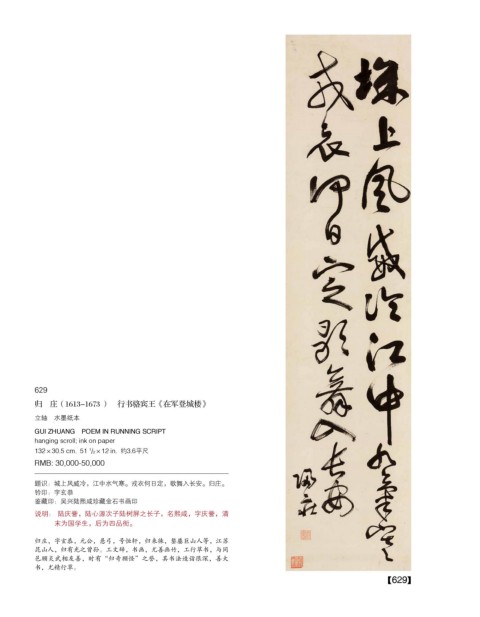 城上風威冷江中水氣寒
戎衣何日定歌舞入長安
歸莊
629
归　庄（1613-1673 ）　行书骆宾王《在军登城楼》
立轴　水墨纸本
GUI ZHUANG　POEM IN RUNNING SCRIPT
hanging scroll; ink on paper
132×30.5 cm. 51 ⁷/₈×12 in. 约3.6平尺
RMB: 30,000-50,000
题识：城上风威冷，江中水气寒。戎衣何日定，歌舞入长安。归庄。
钤印：字玄恭
鉴藏印：吴兴陆熙咸珍藏金石书画印
说明： 陆庆誉，陆心源次子陆树屏之长子，名熙咸，字庆誉，清
末为国学生，后为邑品衔。
归庄，字玄恭，尤公，悬弓，号恒轩，归来族，鏊鏖巨山人等，江苏
昆山人，归有光之曾孙。工文辞、书画，尤善画竹，工行草书。与同
邑顾炎武相友善，时有“归奇顾怪”之誉，其书法造诣很深，善大
书，尤精行草。
【629】